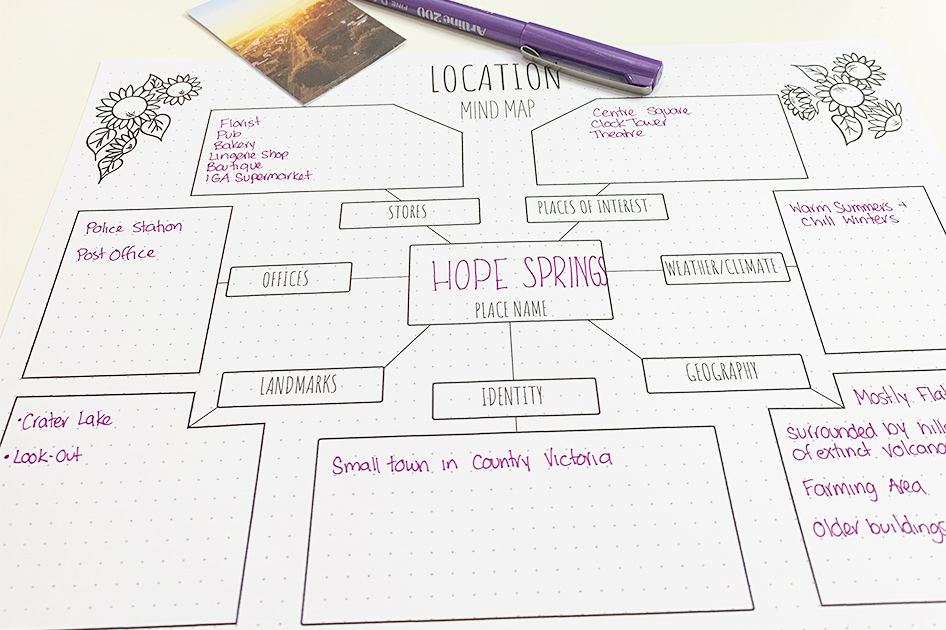 Artline 200
FINE
LOCATION
MIND MAP
Florist
Pub
Bakery
Lingerie Shop
Boutique
IGA Supermarket
Centre Square
Clock Tower
Theatre
STORES
PLACES OF INTEREST
Police Station
Post Office
Warm Summers +
Chill Winters
OFFICES
HOPE SPRINGS
PLACE NAME
WEATHER/CLIMATE
LANDMARKS
IDENTITY
GEOGRAPHY
•Crater Lake
•Look-Out
Small town in Country Victoria
Mostly Flat
surrounded by hills
of extinct volcano
Farming Area
Older buildings